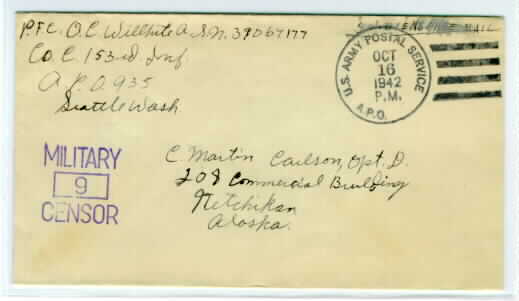 P.F.C. O.C. Wilhite A.S.N. 39067177
Co. C. 153rd Inf.
A.P.O. 935
Seattle Wash
U.S. ARMY POSTAL SERVICE
OCT
16
1942
P.M.
A.P.O.
MAIL
MILITARY
9
CENSOR
C. Martin Carlson, Opt. D.
208 Commercial Building
Ketchikan
Alaska.